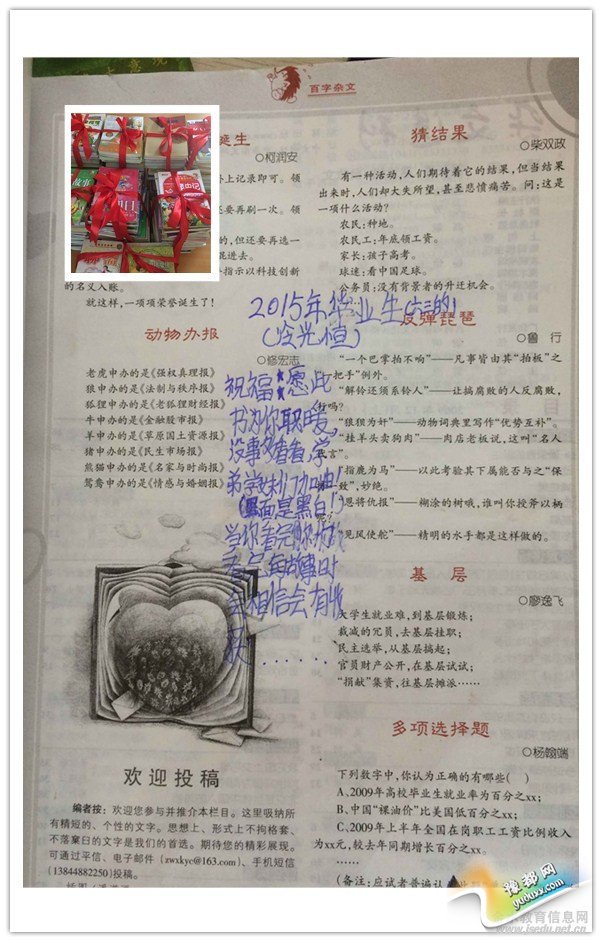 百字杂文
诞生
○柯润安
上记录即可。领
要再刷一次。领
的,但还要再选一
混进去。
指示以科技创新
的名义入账。
就这样,一项项荣誉诞生了!
动物办报
○修宏志
老虎申办的是《强权真理报》
狼申办的是《法制与秩序报》
狐狸申办的是《老狐狸财经报》
牛申办的是《金融股市报》
羊申办的是《草原国土资源报》
猪申办的是《民生市场报》
熊猫申办的是《名家与时尚报》
鸳鸯申办的是《情感与婚姻报》
欢迎投稿
编者按:欢迎您参与并推介本栏目。这里吸纳所
有精短的、个性的文字。思想上、形式上不拘格套、
不落窠臼的文字是我们的首选。期待您的精彩展现。
可通过平信、电子邮件(zwxkyc@163.com)、手机短信
(13844882250)投稿。
猜结果
○柴双政
有一种活动,人们期待着它的结果,但当结果
出来时,人们却大失所望,甚至悲愤痛苦。问:这是
一项什么活动?
农民:种地。
农民工:年底领工资。
家长:孩子高考。
球迷:看中国足球。
公务员:没有背景者的升迁机会。
反弹琵琶
○鲁 行
“一个巴掌拍不响”——凡事皆由其“拍板”之
“一把手”例外。
“解铃还须系铃人”——让搞腐败的人反腐败,
行吗?
“狼狈为奸”——动物词典里写作“优势互补”。
“挂羊头卖狗肉”——肉店老板说,这叫“名人
言”。
“指鹿为马”——以此考验其下属能否与之“保
致”,妙绝。
恩将仇报”——糊涂的树哦,谁叫你授斧以柄
“见风使舵”——精明的水手都是这样做的。
基层
○廖逸飞
大学生就业难,到基层锻炼;
裁减的冗员,去基层挂职;
民主选举,从基层搞起;
官员财产公开,在基层试试;
“捐献”集资,往基层摊派……
多项选择题
○杨翰端
下列数字中,你认为正确的有哪些( )
A、2009年高校毕业生就业率为百分之xx;
B、中国“裸油价”比美国低百分之xx;
C、2009年上半年全国在岗职工工资比例收入
为xx元,较去年同期增长百分之xx。
……
(备注:应试者普遍认
2015年毕业生
祝福 愿此
书为你取暖,
没事多看看,学
弟学妹们加油
面是黑白!)
当你看完
每个故事时
会相信会有收
获……
豫都网
yuduxx.com
教育信息网
www.isedu.net.cn